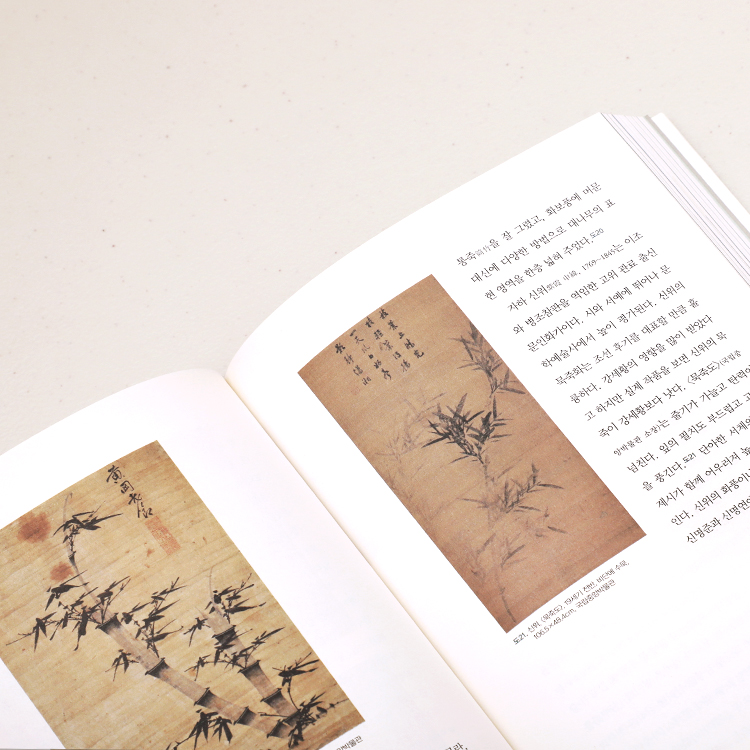 黃岡
박물관
묵죽墨竹을 잘 그렸고, 화보풍에 머문
대신에 다양한 방법으로 대나무의 표
현 영역을 한층 넓혀 주었다.도20
자하 신위紫霞 申緯, 1769~1845는 이조
와 병조참판을 역임한 고위 관료 출신
문인화가이다. 시와 서예에 뛰어나 문
학예술사에서 높이 평가된다. 신위의
묵죽화는 조선 후기를 대표할 만큼 훌
륭하다. 강세황의 영향을 많이 받았다
고 하지만 실제 작품을 보면 신위의 묵
죽이 강세황보다 낫다. 〈묵죽도〉국립중
앙박물관 소장는 줄기가 가늘고 탄력이
넘친다. 잎의 필치도 부드럽고 고
을 풍긴다.도21 단아한 서체의
제시가 함께 어우러져 높
인다. 신위의 화풍이
신명준과 신명연
도21. 신위, 〈묵죽도〉, 19세기 전반, 비단에 수묵,
106.5×49.4cm, 국립중앙박물관